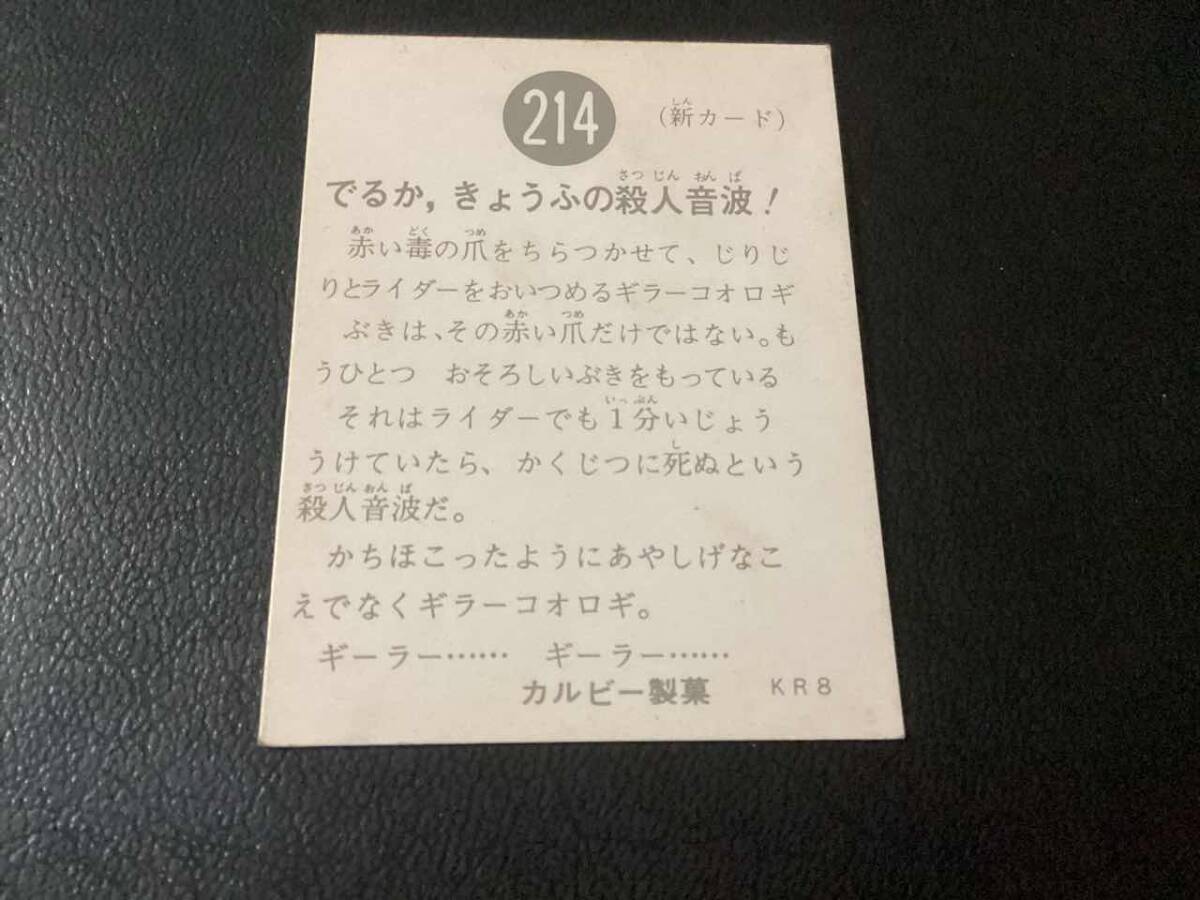 214
(新カード)
でるか，きょうふの殺人音波！
赤い毒の爪をちらつかせて、じりじ
りとライダーをおいつめるギラーコオロギ
ぶきは、その赤い爪だけではない。も
うひとつ　おそろしいぶきをもっている
それはライダーでも１分いじょう
うけていたら、かくじつに死ぬという
殺人音波だ。
かちほこったようにあやしげなこ
えでなくギラーコオロギ。
ギーラー……　ギーラー……
カルビー製菓　KR8